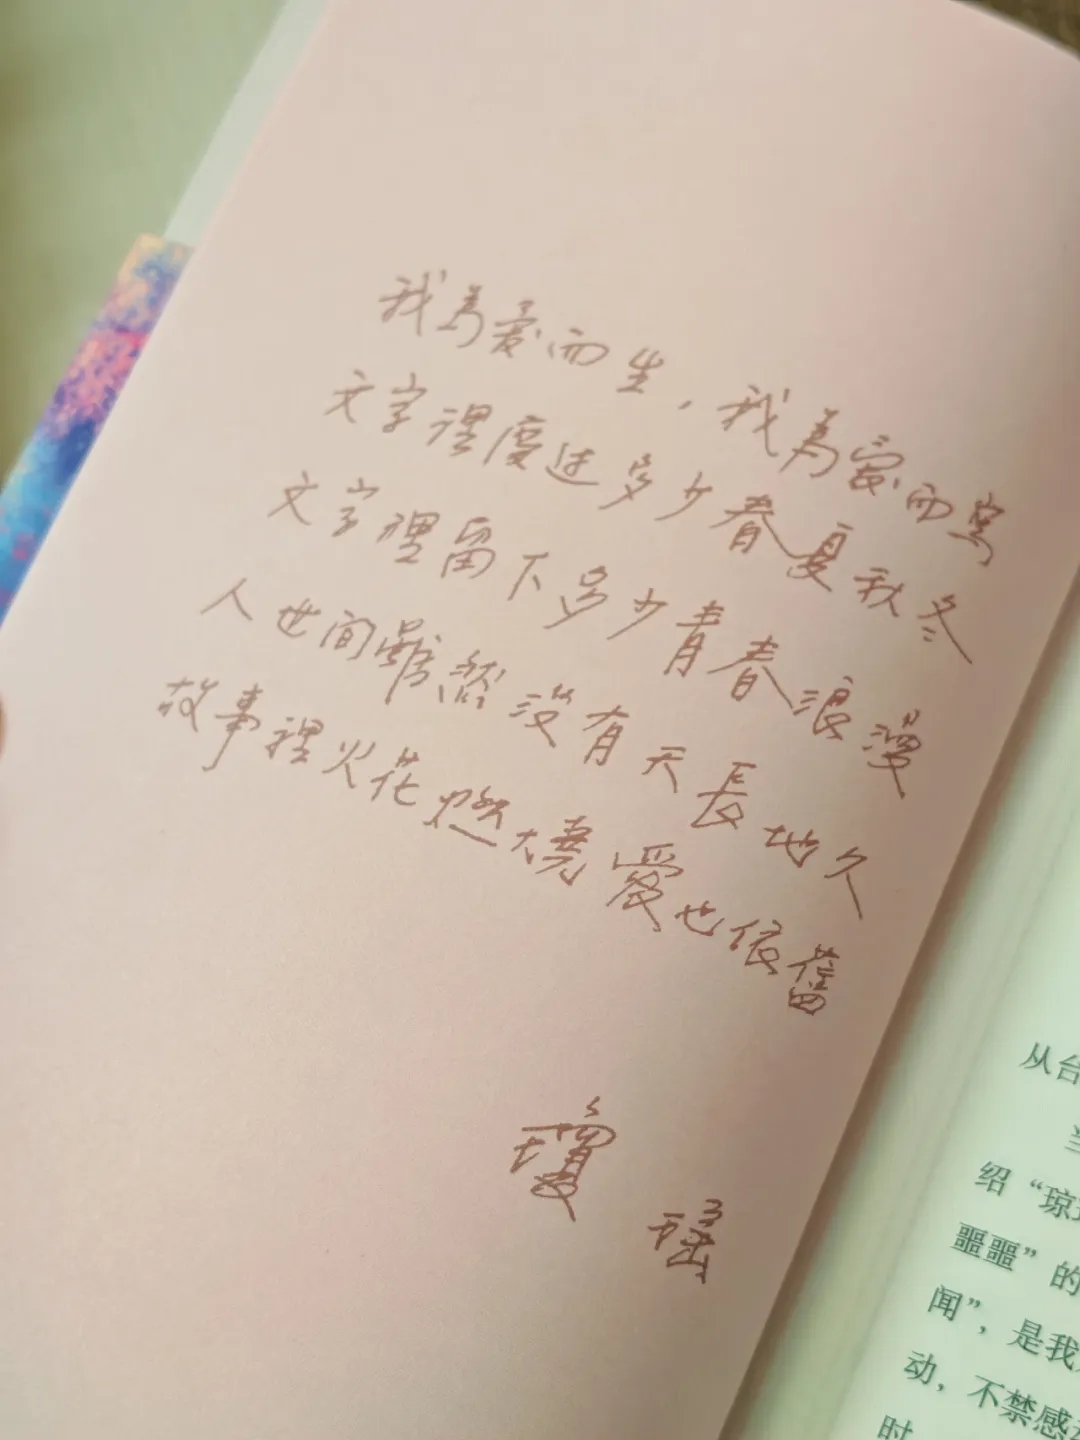 我為愛而生，我為愛而寫
文字裡度过多少春夏秋冬
文字裡留下多少青春浪漫
人世间雖然沒有天長地久
故事裡火花燃燒愛也依舊
瓊瑤
从台
当
绍“琼
噩噩”的
闻”，是我
动，不禁感
时